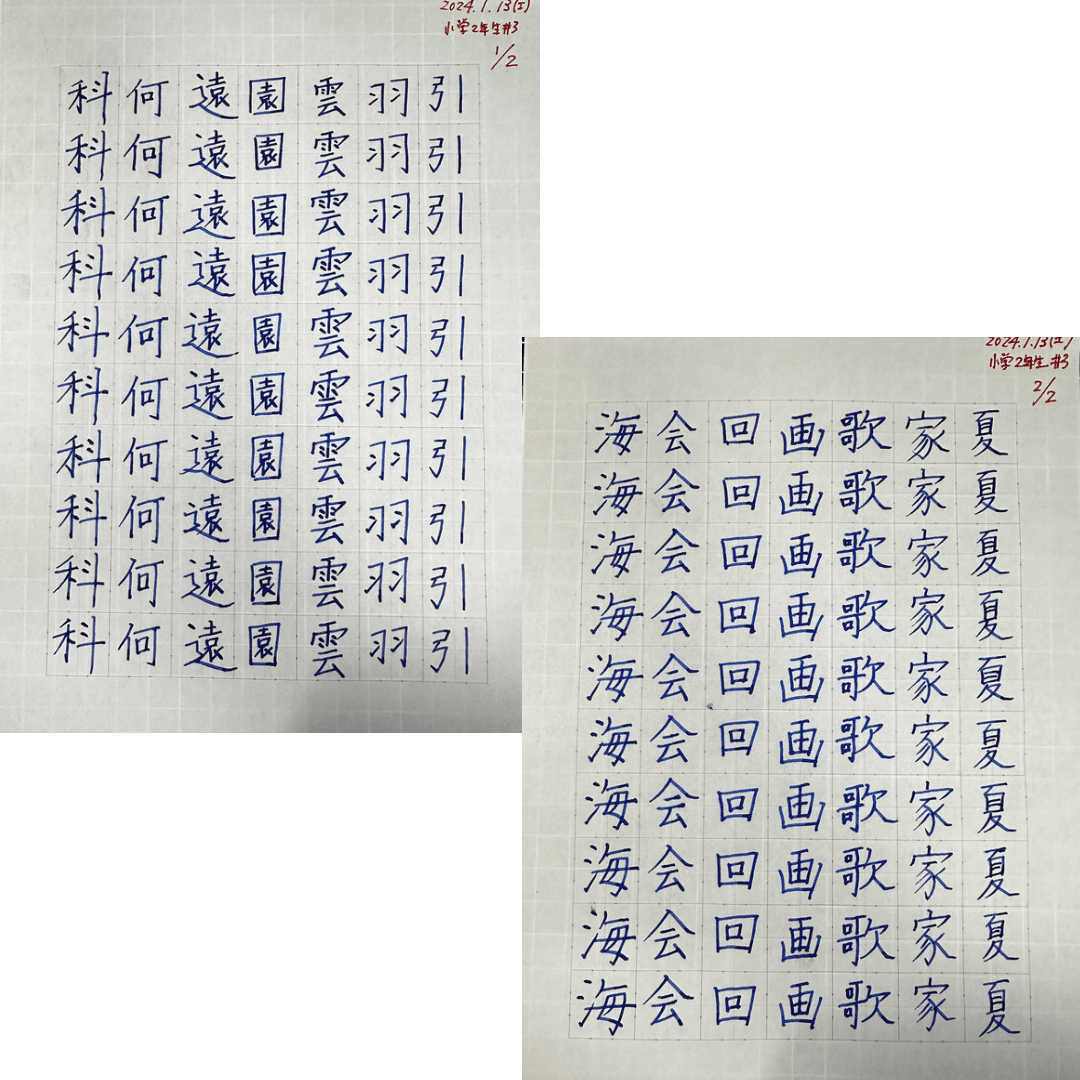 2024.1.13(土)
小学2年生#3
1/2
引引引引引引引引引引
羽羽羽羽羽羽羽羽羽羽
雲雲雲雲雲雲雲雲雲雲
園園園園園園園園園園
遠遠遠遠遠遠遠遠遠遠
何何何何何何何何何何
科科科科科科科科科科
2024.1.13(土)
小学2年生#3
2/2
夏夏夏夏夏夏夏夏夏夏
家家家家家家家家家家
歌歌歌歌歌歌歌歌歌歌
画画画画画画画画画画
回回回回回回回回回回
会会会会会会会会会会
海海海海海海海海海海